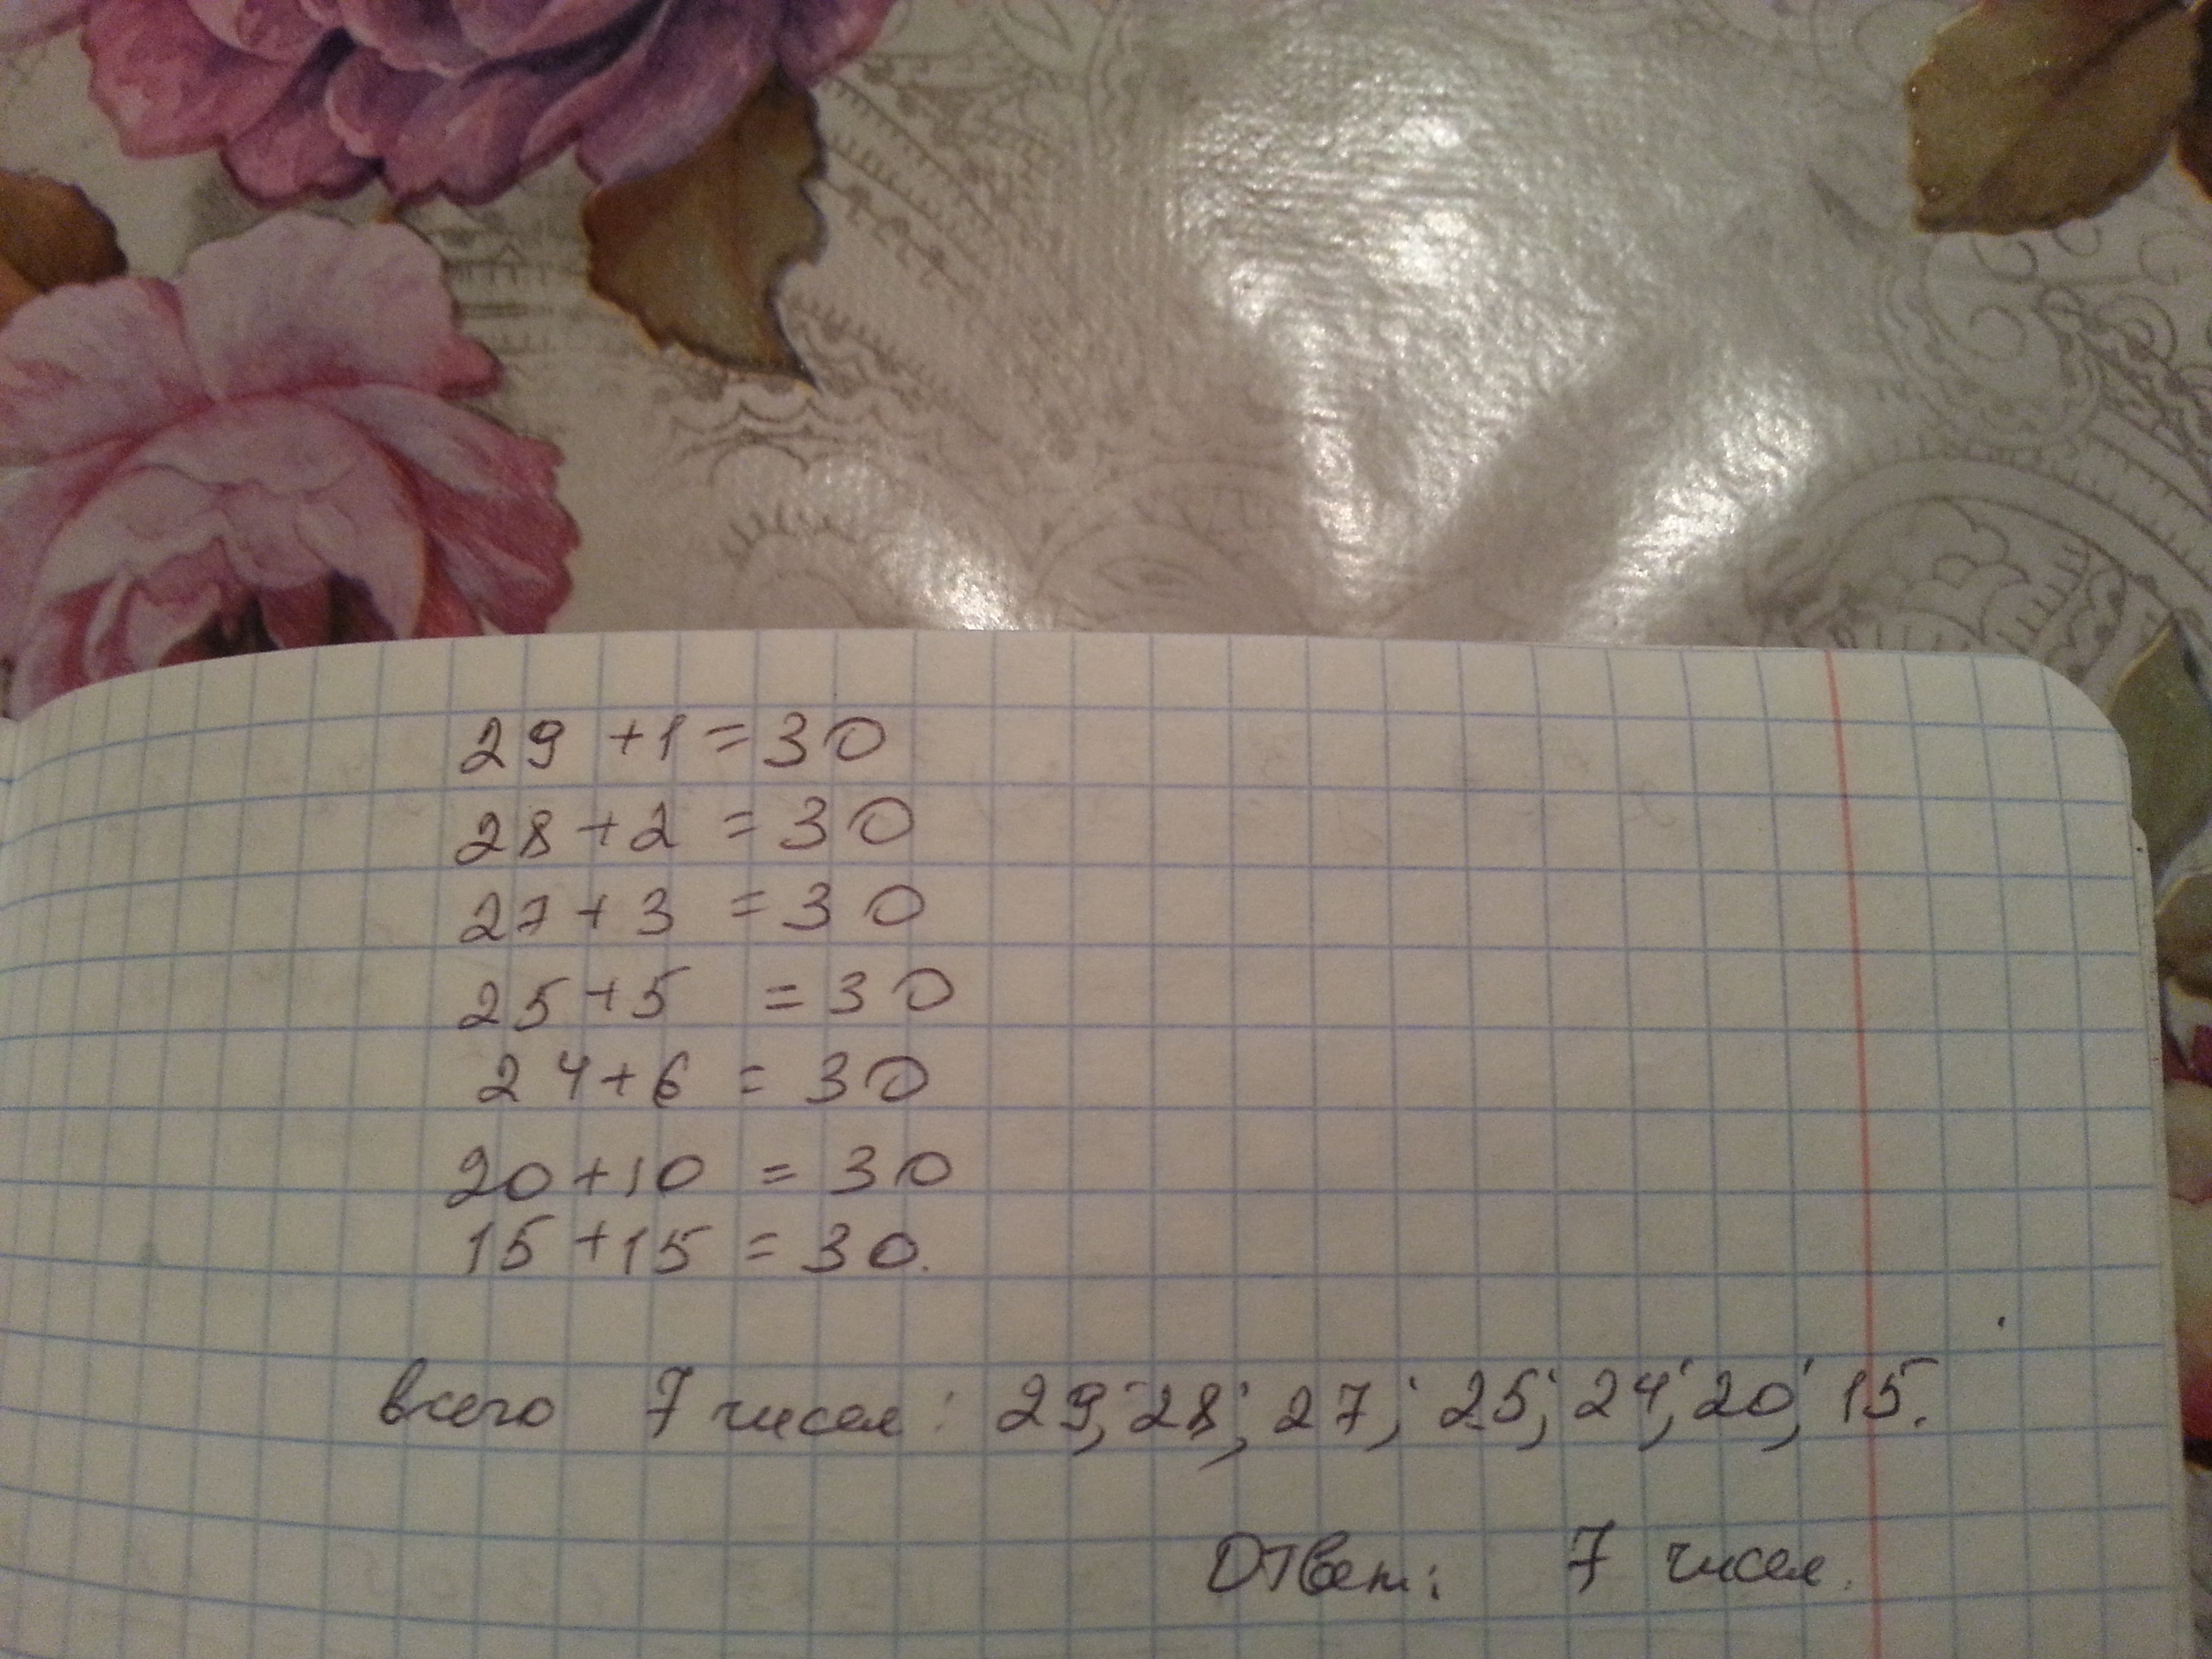 29 + 1 = 30
28 + 2 = 30
27 + 3 = 30
25 + 5 = 30
24 + 6 = 30
20 + 10 = 30
15 + 15 = 30.
всего 7 чисел: 29; 28; 27; 25; 24; 20; 15.
Ответ: 7 чисел.